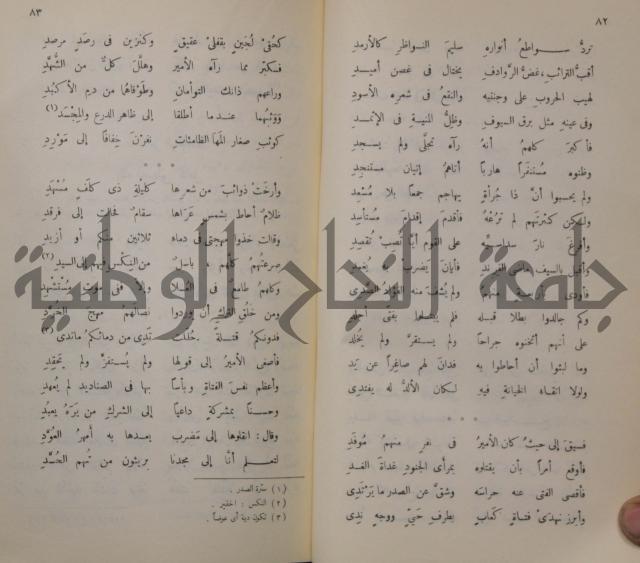 ٨٢
تردُّ سواطعُ أنواره سليمَ النواظر كالأرمدِ
أقبُّ الترائب، غضُّ الرَّوادفِ يختال فى غصن أميدِ
لهيب الحروب على وجنتيه والنقعُ فى شعره الأسودِ
وفى عينهِ مثل برق السيوف وظلُّ المنيةِ فى الإثمدِ
فأكبرَ كلهمُ أنهُ رآه تجلَّى ولم يسجدِ
وظنوه مُستنفَراً هارباً أتاهمْ إتيان مستنجدِ
ولم يحسبوا أن ذا جُرأةٍ يهاجم جمعاً بلا مُسْعِد
كثرتهم لم تَرُعْهُ فأقدمَ إقدامَ مُستأسدِ
نارَ على القوم أيًّا تصِبْ تُقصِد
وأقبل بالسيف
وكم جالدوا بطلا قبله فلم بفتى أجلدِ
على أنهم أثخنوه جراحاً ولم يستقرَّ ولم يُخلد
وما لبثوا أن أحاطوا به فدانَ لهم صاغراً عن يَد
ولولا اتقاه الخيانةِ فيهِ لكان الألدَّ له يفتدى
* * *
فسيقَ إلى حيثُ كان الأميرُ فى نفر منهمُ مُوفَدِ
فأوقع أمراً بأن يقتلوه بمرأى الجنودِ غداةَ الغدِ
فأقصى الفتى عنه حراسه وشقَّ عن الصدر ما يَرتدى
وأبرز نهدَىْ فتاةٍ كعابٍ بطرفٍ حَيٍّ ووجهٍ ندِى
٨٣
كحُقىْ لُجَينٍ بقفلىْ عقيقٍ وكنزين فى رصَدٍ مرصدِ
فكبّر مما رآه الأمير وهلَّلَ كلٌّ من الشُّهَّدِ
وراعهم ذانك التوأمان وطَوْقاهُما من دمِ الأكبُدِ
ووثبهُما عندما أطلقا إلى ظاهر الدرعِ والمِجسَد(١)
كوثب صغار المَهَا الظامئات نفرْنَ خِفافاً إلى مَوْرِدِ
* * *
وأرختْ ذوائبَ من شعرها كليلةِ ذى كلَفٍ مُسْهَدِ
ظلامٌ أحاط بشمسٍ عَرَاها سقامٌ فحالت إلى فرقدِ
وقالت خذوا مهجتى فى دماه ثلاثين منكم أو أزيد
صرعتُهمُ كلهم باسلٌ من النِكْس فيهم إلى السيدِ(٢)
وكلهمُ طامعٌ فى العُلا
ومن خُلُق التركِ أن يوردوا نصالهمُ مهجَ الخُرَّدِ
فدونكمُ قتلةً حُللت تَدِى من دمائكمُ ماتدى(٣)
فأصغى الأميرُ إلى قولها ولم يُستفزَّ ولم يَحقِدِ
وأعظم نفسَ الفتاةِ وبأساً بها فى الصناديد لم يُعهدِ
وحسناً بمشركةٍ داعياً إلى الشركِ من يَرَهُ يعبُدِ
وقال: انقلوها إلى مَضرِب يعدها به أمهرُ العُوَّدِ
لتعلم أنَّا إلى مجدنا بريئون من تهم الحُسَّدِ
(١) سترة الصدر .
(٢) النكس : الحقير .
(٣) تكون دية أى عوضاً .
جامعة النجاح الوطنية